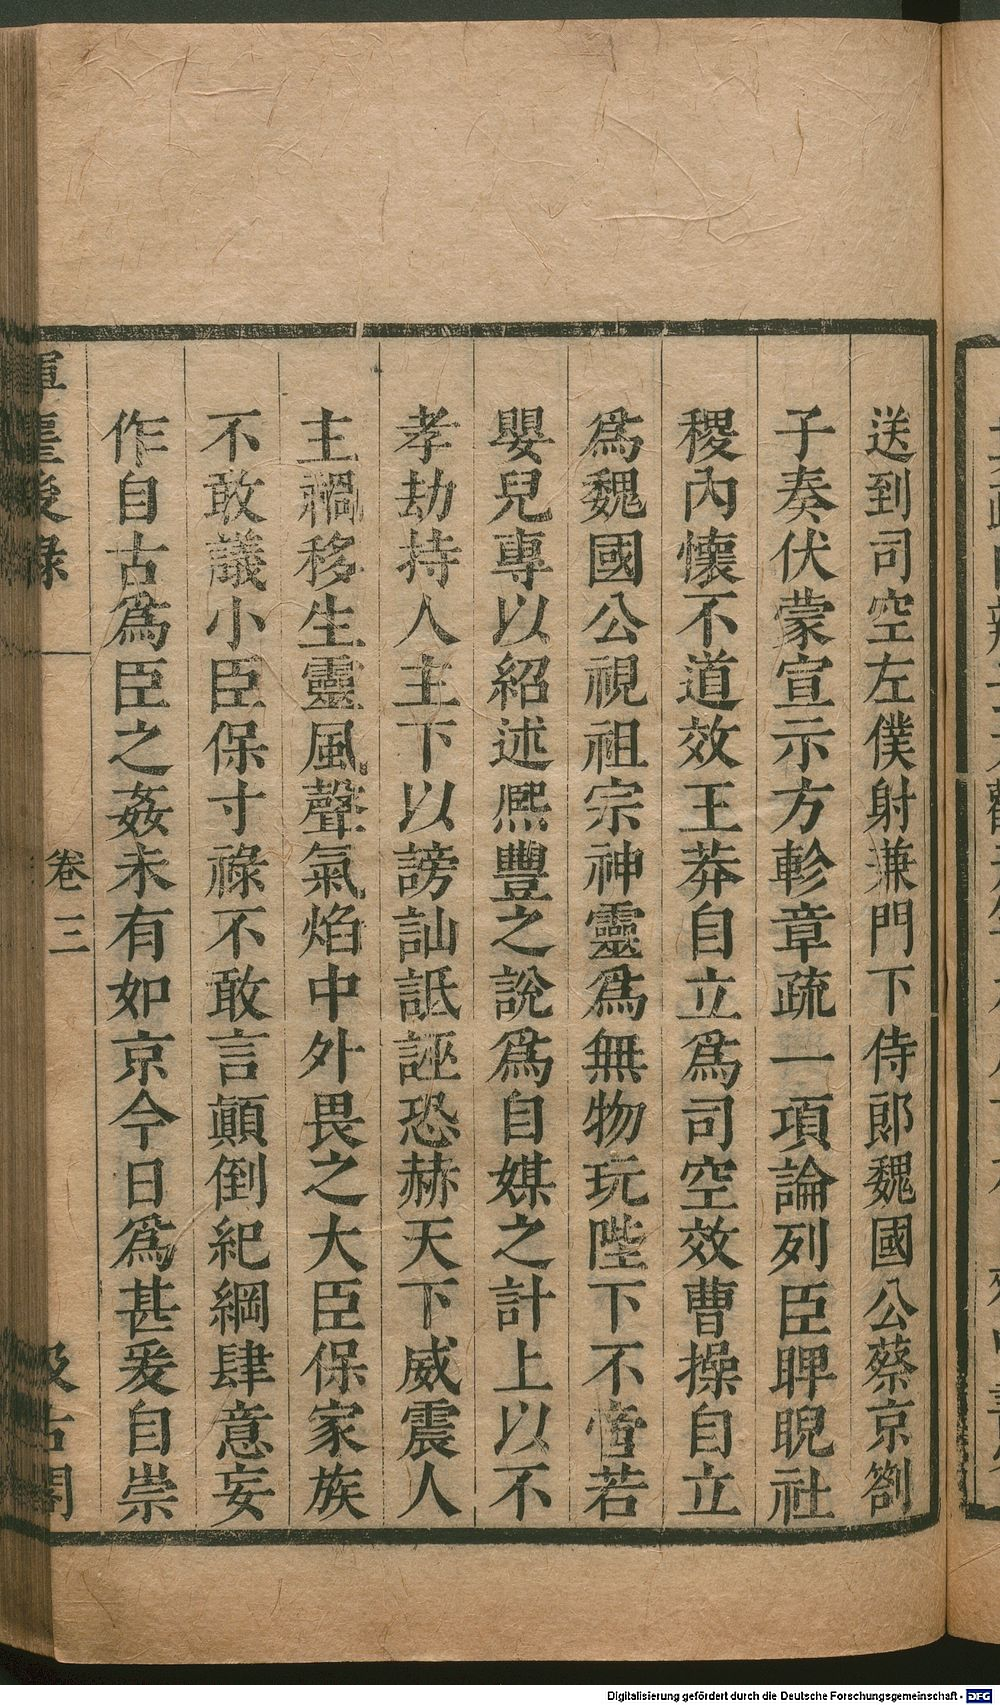 送到司空左僕射兼門下侍郎魏國公蔡京劄
子奏伏蒙宣示方軫章疏一項論列臣睥睨社
稷內懷不道效王莽自立爲司空效曹操自立
爲魏國公視祖宗神靈爲無物玩陛下不啻若
嬰兒專以紹述熈豐之說爲自媒之計上以不
孝劫持人主下以謗訕詆誣恐赫天下威震人
主禍移生靈風聲氣焰中外畏之大臣保家族
不敢議小臣保寸祿不敢言顛倒紀綱肆意妄
作自古爲臣之姦未有如京今日爲甚爰自崇
揮麈後錄
卷三
汲古閣
Digitalisierung gefördert durch die Deutsche Forschungsgemeinschaft - DFG